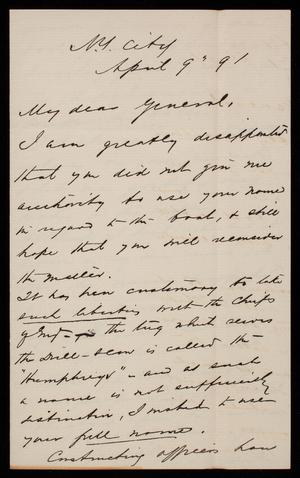 N.Y. City
April 9th 91
My dear General,
I am greatly disappointed
that you did not give me
authority to use your name
in regard to this boat, & still
hope that you will reconsider
the matter.
It has been customary to take
such liberties with the Chiefs
of Eng – the tug which serves
the drill-scow is called the
"Humphreys" – and as such
a name is not sufficiently
distinctive, I wished to use
your full name.
Constructing officers have